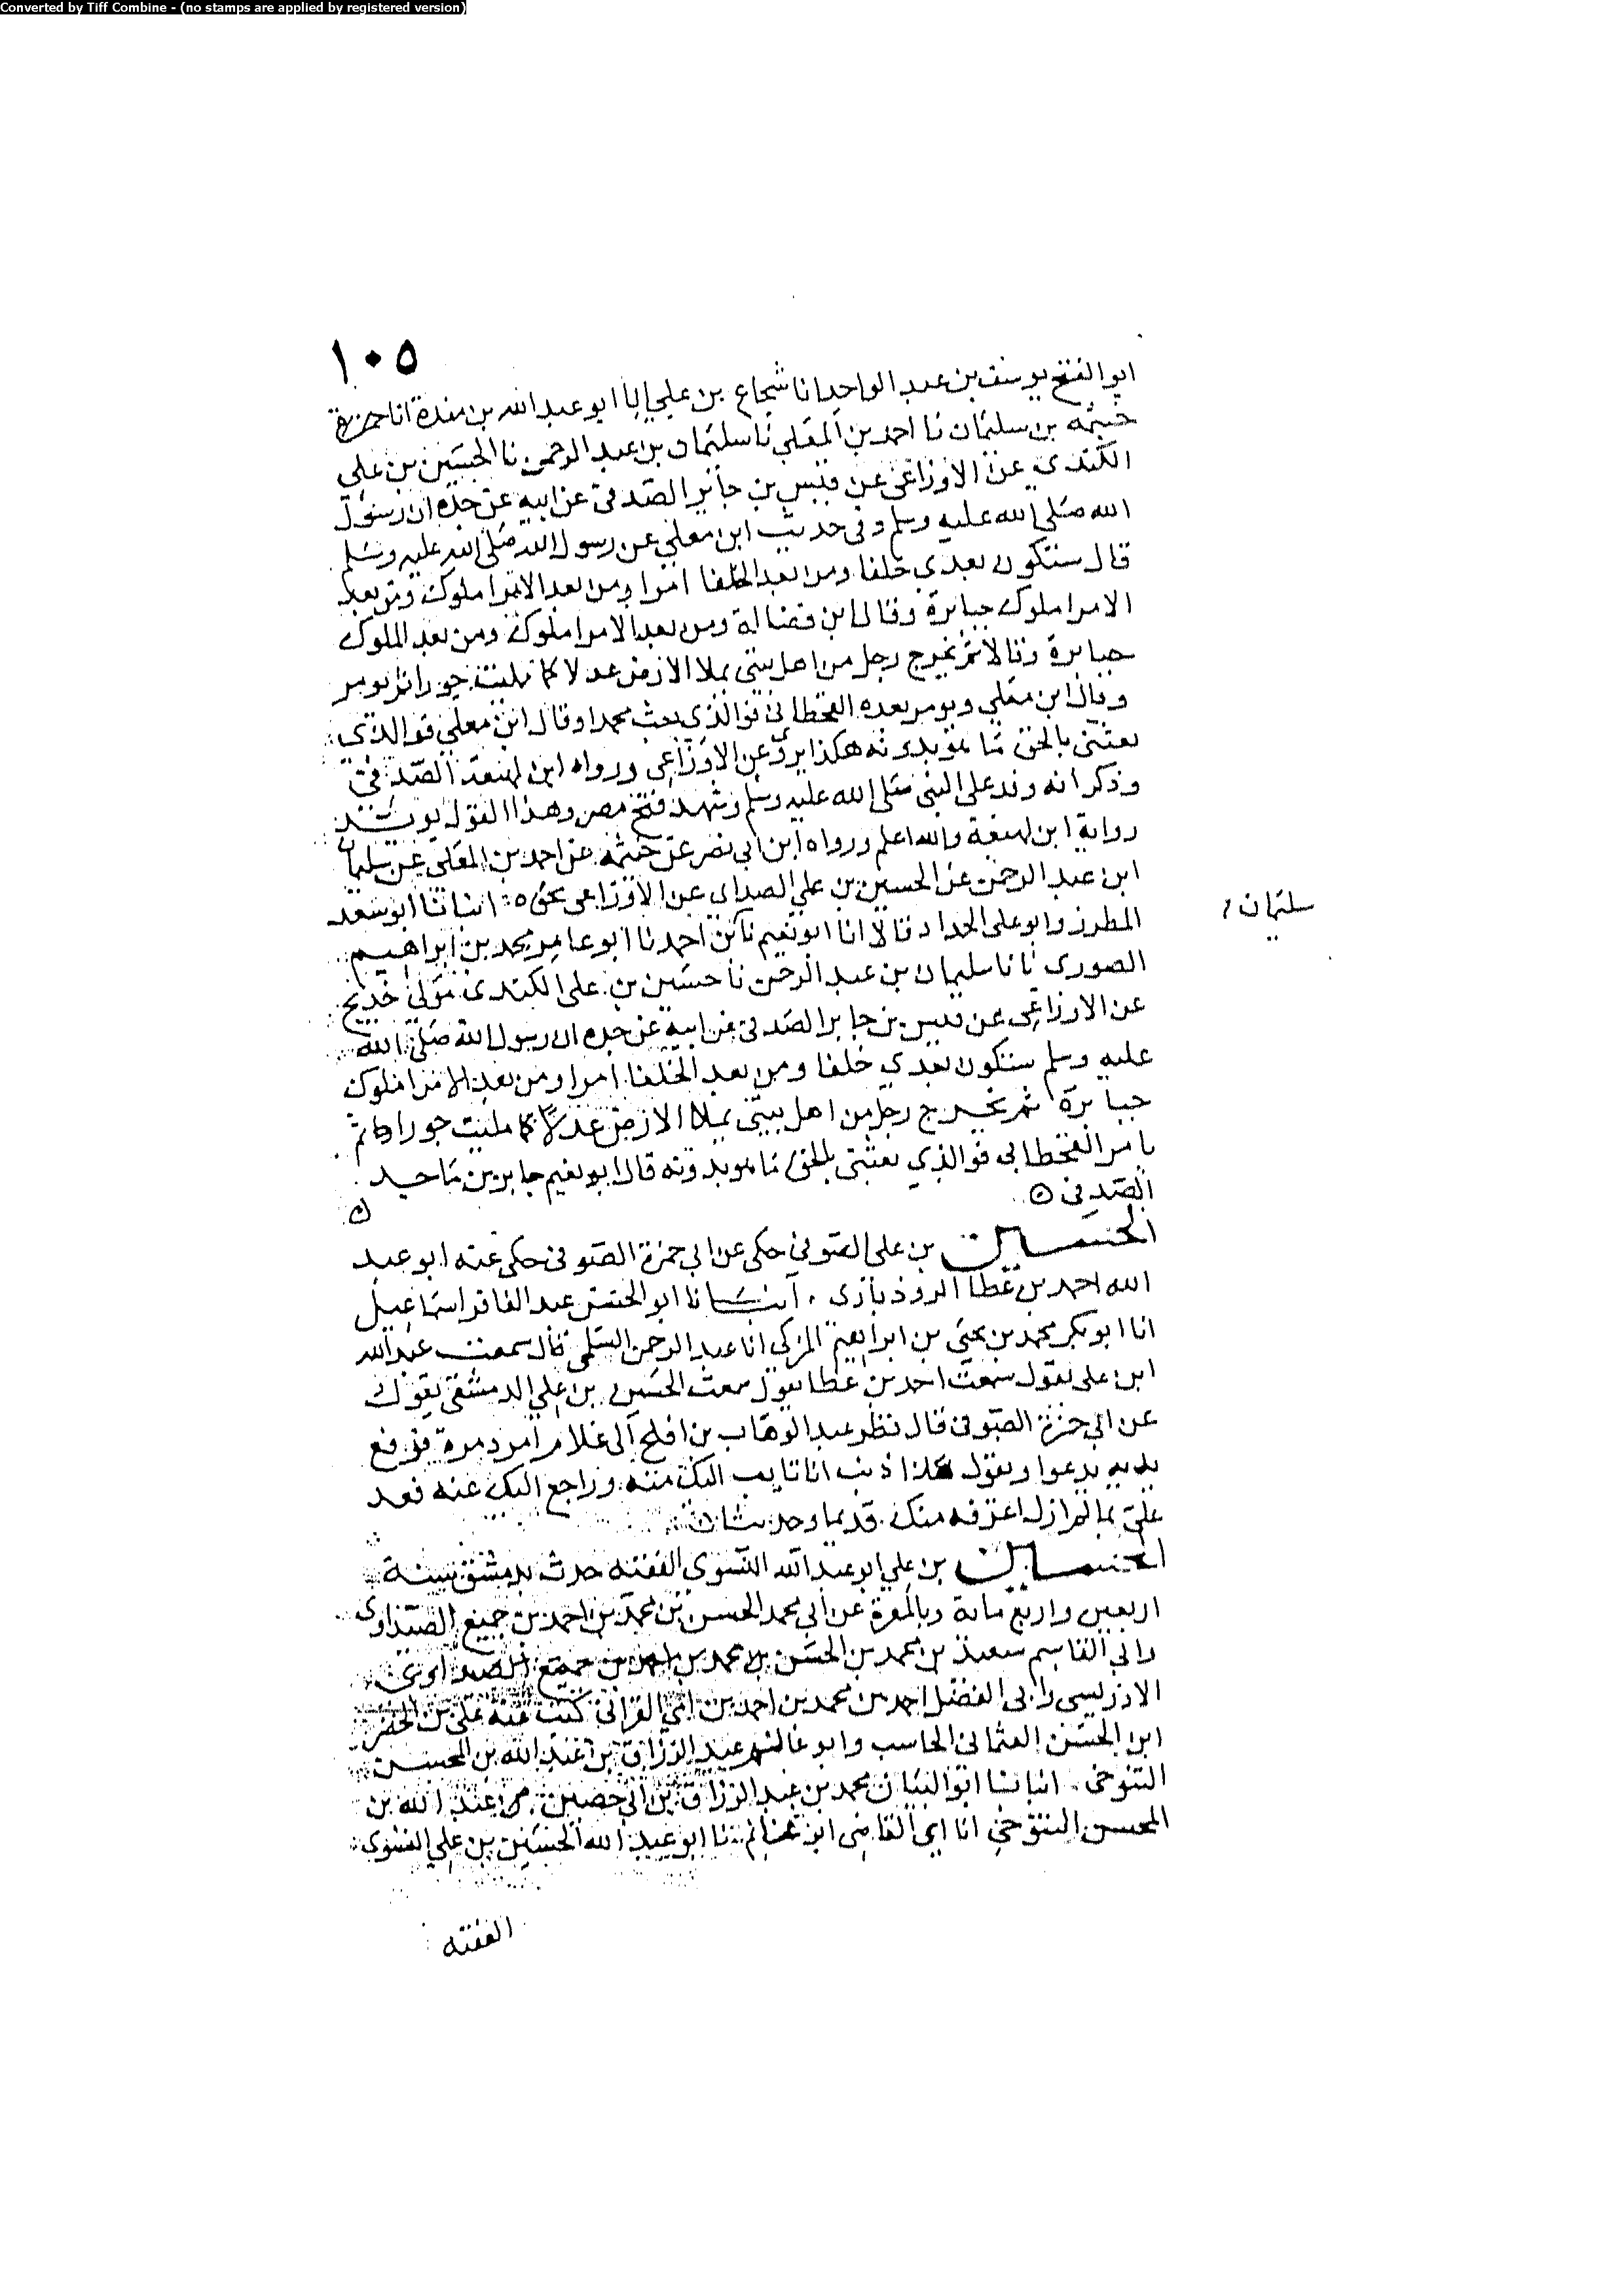 Converted by Tiff Combine - (no stamps are applied by registered version)
١٠٥
ابو الفتح يوسف بن عبد الواحد انا شجاع بن علي انا ابو عبد الله بن مندة انا حمزة
خيثمة بن سليمان نا احمد بن المعلي نا سليمان بن عبد الرحمن نا الحسين بن علي
الكندي عن الاوزاعي عن قيس بن جابر الصدفي عن ابيه عن جده ان رسول
الله صلي الله عليه وسلم وفي حديث ابن معلي عن رسول الله صلي الله عليه وسلم
قال ستكون بعدي خلفا ومن بعد الخلفا امرا ومن بعد الامرا ملوك ومن بعد
الامرا ملوك جبابرة وقال ابن فضالة ومن بعد الامرا ملوك ومن بعد الملوك
جبابرة وقالا ثم يخرج رجل من اهل بيتي يملا الارض عدلا كما مليت جورا ثم يومر
وقال ابن معلي ويومر بعده القحطاني فوالذي بعث محمدا وقال ابن معلي فوالذي
بعثني بالحق ما هو بدونه هكذا يروي عن الاوزاعي ورواه ابن لهيعة الصدفي
وذكر انه وفد علي النبي صلي الله عليه وسلم وشهد فتح مصر وهذا القول يويد
رواية ابن لهيعة والله اعلم ورواه ابن ابي نصر عن خيثمة عن احمد بن المعلي عن سليمان
ابن عبد الرحمن عن الحسين بن علي الصداي عن الاوزاعي نحوه انبانا ابو سعد
سليمان
المطرز وابو علي الحداد قالا انا ابو نعيم نا بن احمد نا ابو عامر محمد بن ابراهيم
الصوري نا سليمان بن عبد الرحمن نا حسين بن علي الكندي مولي خديج
عن الاوزاعي عن قيس بن جابر الصدفي عن ابيه عن جده ان رسول الله صلي الله
عليه وسلم ستكون بعدي خلفا ومن بعد الخلفا امرا ومن بعد الامرا ملوك
جبابرة ثم يخرج رجل من اهل بيتي يملا الارض عدلا كما مليت جورا ثم
يامر القحطاني فوالذي بعثني بالحق ما هو بدونه قال ابو نعيم جابر بن ماجد
الصدفي
الحسين بن علي الصوفي حكي عن ابي حمزة الصوفي حكي عنه ابو عبد
الله احمد بن عطا الروذباري انبانا ابو الحسن عبد الغافر اسماعيل
انا ابو بكر محمد بن يحيي بن ابراهيم المزكي انا عبد الرحمن السلمي قال سمعت عبد الله
ابن علي يقول سمعت احمد بن عطا يقول سمعت الحسين بن علي الدمشقي يقول
عن ابي حمزة الصوفي قال نظر عبد الوهاب بن افلح الي غلام امرد مرة فرفع
يديه يدعوا ويقول هذا ذنب انا تايب اليك منه وراجع اليك عنه فعد
علي بما لم ازل اعرفه منك قديما وحديثا
الحسين بن علي ابو عبد الله النسوي الفقيه حدث بدمشق سنة
اربعين واربع ماية وبالمعرة عن ابي محمد الحسن بن محمد بن احمد بن جميع الصيداوي
وابي القاسم سعيد بن محمد بن الحسن بن محمد بن احمد بن جميع الصيداوي
الادريسي وابي الفضل احمد بن محمد بن احمد بن ابي الفراتي كتب عنه علي بن الخضر
ابن الحسن العثماني الحاسب وابو غانم عبد الرزاق بن عبد الله بن المحسن
التنوخي انبانا ابو البيان محمد بن عبد الرزاق بن ابي حصين بن عبد الله بن
المحسن التنوخي انا ابي القاضي ابو غانم نا ابو عبد الله الحسين بن علي النسوي
الفقيه